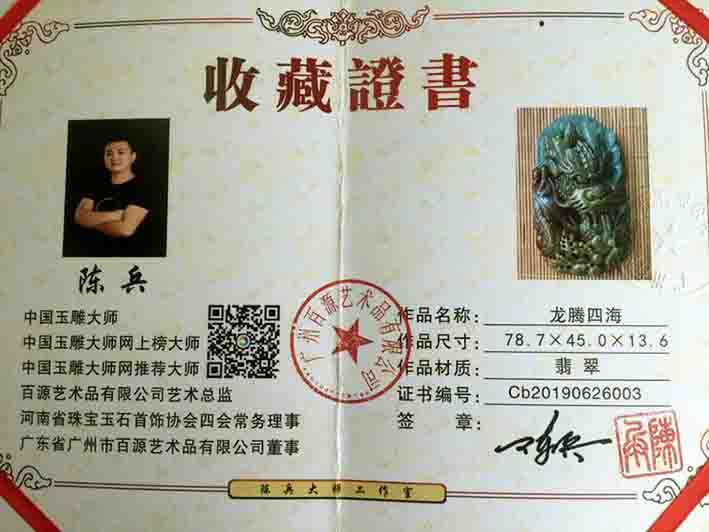 收藏證書
陈兵
中国玉雕大师
中国玉雕大师网上榜大师
中国玉雕大师网推荐大师
百源艺术品有限公司艺术总监
河南省珠宝玉石首饰协会四会常务理事
广东省广州市百源艺术品有限公司董事
广州百源艺术品有限公司
作品名称：龙腾四海
作品尺寸：78.7×45.0×13.6
作品材质：翡翠
证书编号：Cb20190626003
签章：
陈兵
陈兵大师工作室